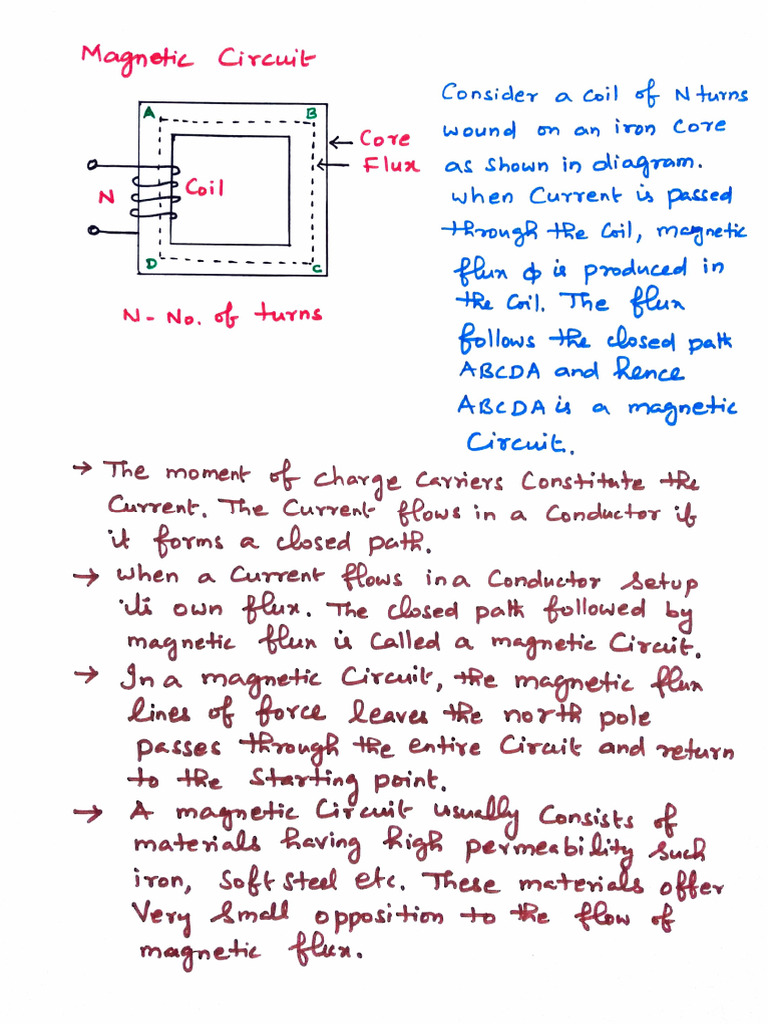 Magnetic Circuit
A
B
Core
Flux
Coil
N
D
C
N - No. of turns
Consider a coil of N turns
wound on an iron core
as shown in diagram.
when Current is passed
through the coil, magnetic
flux ϕ is produced in
the coil. The flux
follows the closed path
ABCDA and hence
ABCDA is a magnetic
Circuit.
→ The moment of charge carriers Constitute the
Current. The Current flows in a Conductor if
it forms a closed path.
→ when a Current flows in a Conductor setup
its own flux. The closed path followed by
magnetic flux is called a magnetic Circuit.
→ In a magnetic Circuit, the magnetic flux
lines of force leaves the north pole
passes through the entire Circuit and return
to the starting point.
→ A magnetic Circuit usually Consists of
materials having high permeability such
iron, soft steel etc. These materials offer
Very small opposition to the flow of
magnetic flux.